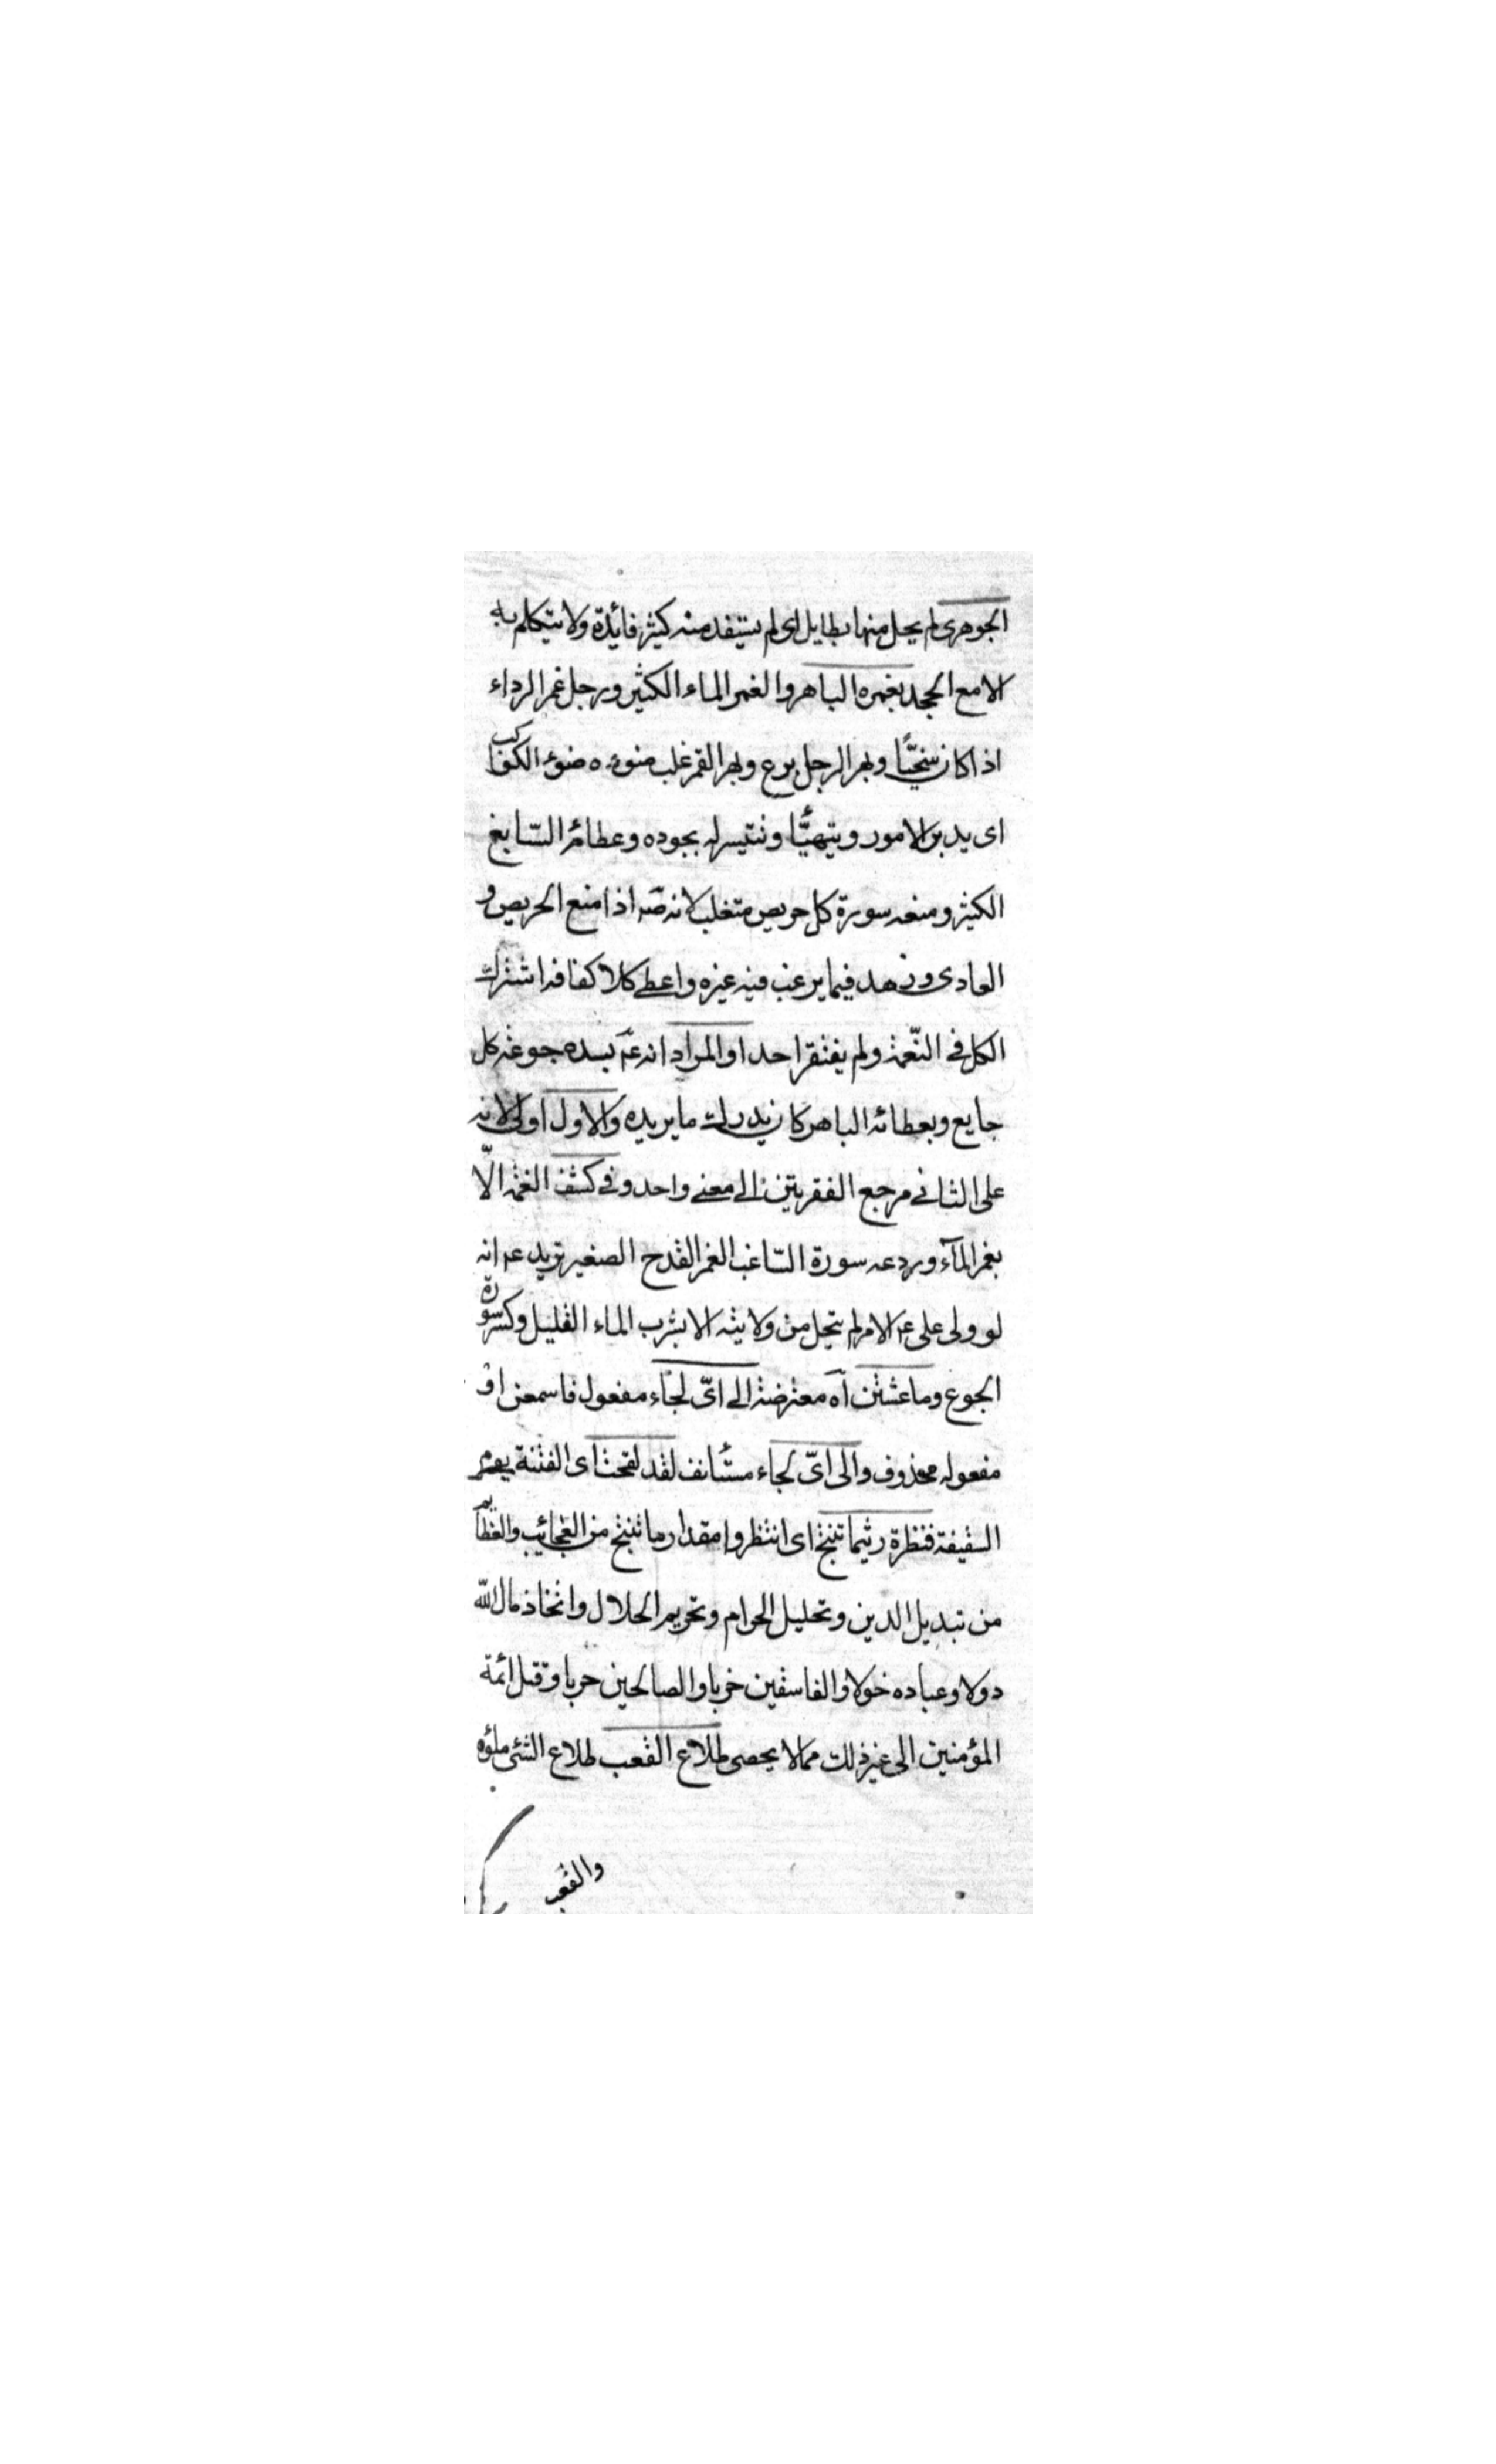 الجوهرى لم يحل منها بطايل اى لم يستفد منه كثير فائدة ولا يتكلم به
الا مع الجحد بغمره الباهر والغمر الماء الكثير ورجل غمر الرداء
اذا كان سخيّا وبهر الرجل برع وبهر القمر غلب ضوءه ضوء الكواكب
اى يدبر الامور ويتهيّأ وتتيسر له بجوده وعطائه السّابغ
الكثير ومنعه سورة كل حريص متغلب لانه اذا منع الحريص و
العادى وزهد فيما يرغب فيه غيره واعطى كلا كفافه اشترك
الكل فى النّعمة ولم يفتقر احد او المراد انه عم بسده جوعة كل
جايع وبعطائه الباهر كان يدرك ما يريده والاول اولى لانه
على الثانى مرجع الفقرتين الى معنى واحد وفى كشف الغمة الّا
بغمر المآء وردعه سورة السّاغب الغمر القدح الصغير تريد عم انه
لو ولى على عم الامر لم يتحل من ولايته الا بشرب الماء القليل وكسر سورة
الجوع وما عشتن آه معترضة الى اىّ لجاء مفعول فاسمعن او
مفعوله محذوف والى اىّ لجاء مستأنف لقد لقحت اى الفتنة يوم
السقيفة فنظرة ريثما تنتج اى انتظروا مقدار ما تنتج من العجائب والعظائم
من تبديل الدين وتحليل الحرام وتحريم الحلال واتخاذ مال اللّه
دولا وعباده خولا والفاسقين حزبا والصالحين حربا وقتل ائمة
المؤمنين الى غير ذلك مما لا يحصى طلاع القعب طلاع الشئ ملؤه
والقعب